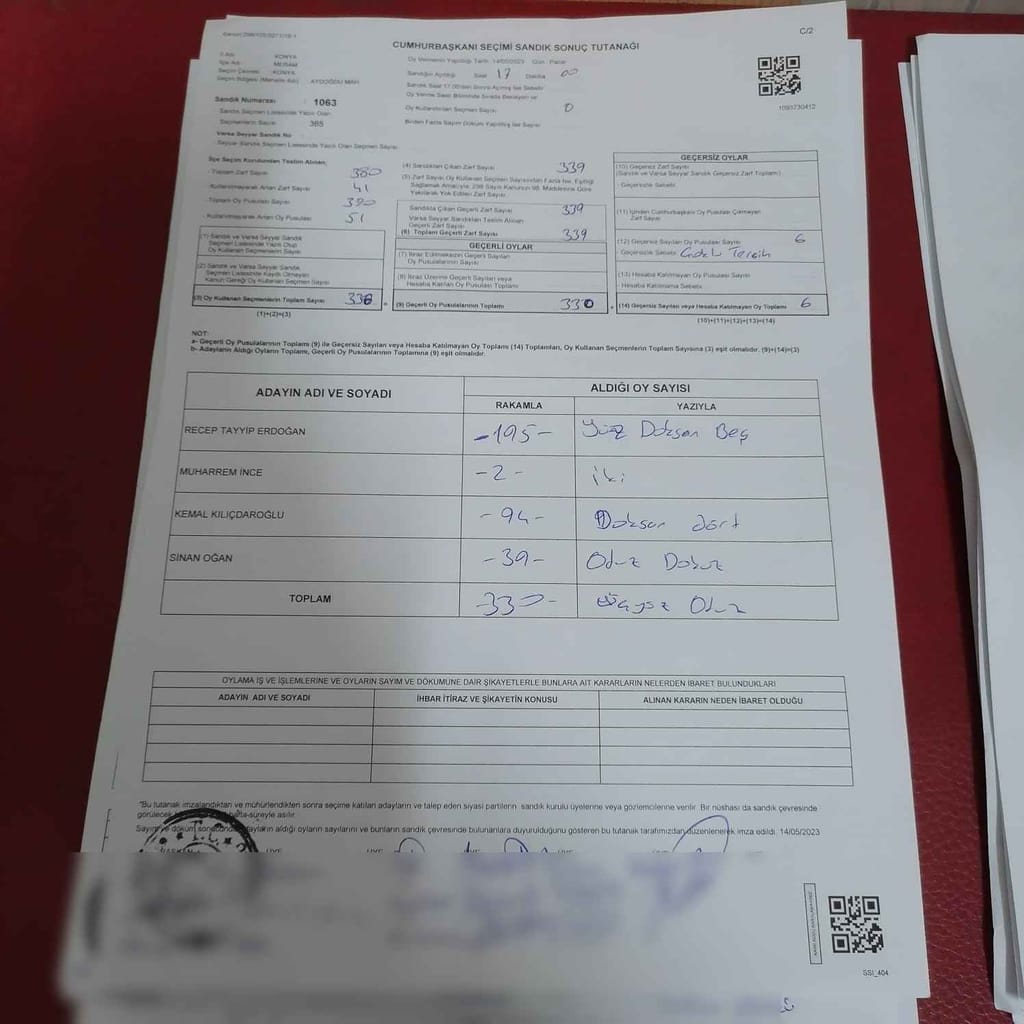 C/2
CUMHURBAŞKANI SEÇİMİ SANDIK SONUÇ TUTANAĞI
İl Adı KONYA
İlçe Adı MERAM
Seçim Çevresi KONYA
Seçim Bölgesi (Mahalle Adı) AYDOĞDU MAH
Sandık Numarası 1063
Sandık Seçmen Listesinde Yazılı Olan
Seçmenlerin Sayısı 365
Varsa Seyyar Sandık No
Seyyar Sandık Seçmen Listesinde Yazılı Olan Seçmen Sayısı
Oy Vermenin Yapıldığı Tarih 14/05/2023 Gün Pazar
Sandığın Açıldığı Saat 17 Dakika 00
Sandık Saat 17.00'den Sonra Açılmış İse Sebebi
Oy Verme Saati Bitiminde Sırada Bekleyen ve
Oy Kullandırılan Seçmen Sayısı 0
Birden Fazla Sayım Döküm Yapılmış İse Sayısı
1093730412
İlçe Seçim Kurulundan Teslim Alınan;
- Toplam Zarf Sayısı 380
- Kullanılmayarak Artan Zarf Sayısı 41
- Toplam Oy Pusulası Sayısı 390
- Kullanılmayarak Artan Oy Pusulası 51
(1) Sandık ve Varsa Seyyar Sandık
Seçmen Listesinde Yazılı Olup
Oy Kullanan Seçmenlerin Sayısı
(2) Sandık ve Varsa Seyyar Sandık
Seçmen Listesinde Kaydı Olmayan
Kanun Gereği Oy Kullanan Seçmen Sayısı
(3) Oy Kullanan Seçmenlerin Toplam Sayısı 336
(1)+(2)=(3)
(4) Sandıktan Çıkan Zarf Sayısı 339
(5) Zarf Sayısı Oy Kullanan Seçmen Sayısından Fazla İse, Eşitliği
Sağlamak Amacıyla; 298 Sayılı Kanunun 98. Maddesine Göre
Yakılarak Yok Edilen Zarf Sayısı
Sandıkta Çıkan Geçerli Zarf Sayısı 339
Varsa Seyyar Sandıktan Teslim Alınan
Geçerli Zarf Sayısı
(6) Toplam Geçerli Zarf Sayısı 339
GEÇERLİ OYLAR
(7) İtiraz Edilmeksizin Geçerli Sayılan
Oy Pusulalarının Sayısı
(8) İtiraz Üzerine Geçerli Sayılan veya
Hesaba Katılan Oy Pusulası Toplamı
(9) Geçerli Oy Pusulalarının Toplamı 330
GEÇERSİZ OYLAR
(10) Geçersiz Zarf Sayısı
(Sandık ve Varsa Seyyar Sandık Geçersiz Zarf Toplamı)
- Geçersizlik Sebebi
(11) İçinden Cumhurbaşkanı Oy Pusulası Çıkmayan
Zarf Sayısı
(12) Geçersiz Sayılan Oy Pusulası Sayısı 6
- Geçersizlik Sebebi Tercih
(13) Hesaba Katılmayan Oy Pusulası Sayısı
- Hesaba Katılmama Sebebi
(14) Geçersiz Sayılan veya Hesaba Katılmayan Oy Toplamı 6
(10)+(11)+(12)+(13)=(14)
NOT:
a- Geçerli Oy Pusulalarının Toplamı (9) ile Geçersiz Sayılan veya Hesaba Katılmayan Oy Toplamı (14) Toplamları, Oy Kullanan Seçmenlerin Toplam Sayısına (3) eşit olmalıdır. (9)+(14)=(3)
b- Adayların Aldığı Oyların Toplamı, Geçerli Oy Pusulalarının Toplamına (9) eşit olmalıdır.
ADAYIN ADI VE SOYADI ALDIĞI OY SAYISI
RAKAMLA YAZIYLA
RECEP TAYYİP ERDOĞAN -195- Yüz Doksan Beş
MUHARREM İNCE -2- iki
KEMAL KILIÇDAROĞLU -94- Doksan dört
SİNAN OĞAN -39- Otuz Dokuz
TOPLAM -330- üçyüz Otuz
OYLAMA İŞ VE İŞLEMLERİNE VE OYLARIN SAYIM VE DÖKÜMÜNE DAİR ŞİKAYETLERLE BUNLARA AİT KARARLARIN NELERDEN İBARET BULUNDUKLARI
ADAYIN ADI VE SOYADI İHBAR İTİRAZ VE ŞİKAYETİN KONUSU ALINAN KARARIN NEDEN İBARET OLDUĞU
"Bu tutanak imzalandıktan ve mühürlendikten sonra seçime katılan adayların ve talep eden siyasi partilerin sandık kurulu üyelerine veya gözlemcilerine verilir. Bir nüshası da sandık çevresinde
görülecek süreyle asılır.
Sayım ve döküm sonucunda adayların aldığı oyların sayılarını ve bunların sandık çevresinde bulunanlara duyurulduğunu gösteren bu tutanak tarafımızdan düzenlenerek imza edildi. 14/05/2023
BAŞKAN ÜYE ÜYE ÜYE ÜYE ÜYE
SSI_404